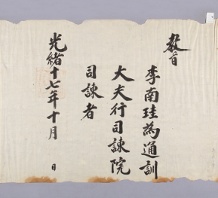 教旨
李南珪為通訓
大夫行司諫院
司諫者
光緒十七年十月 日